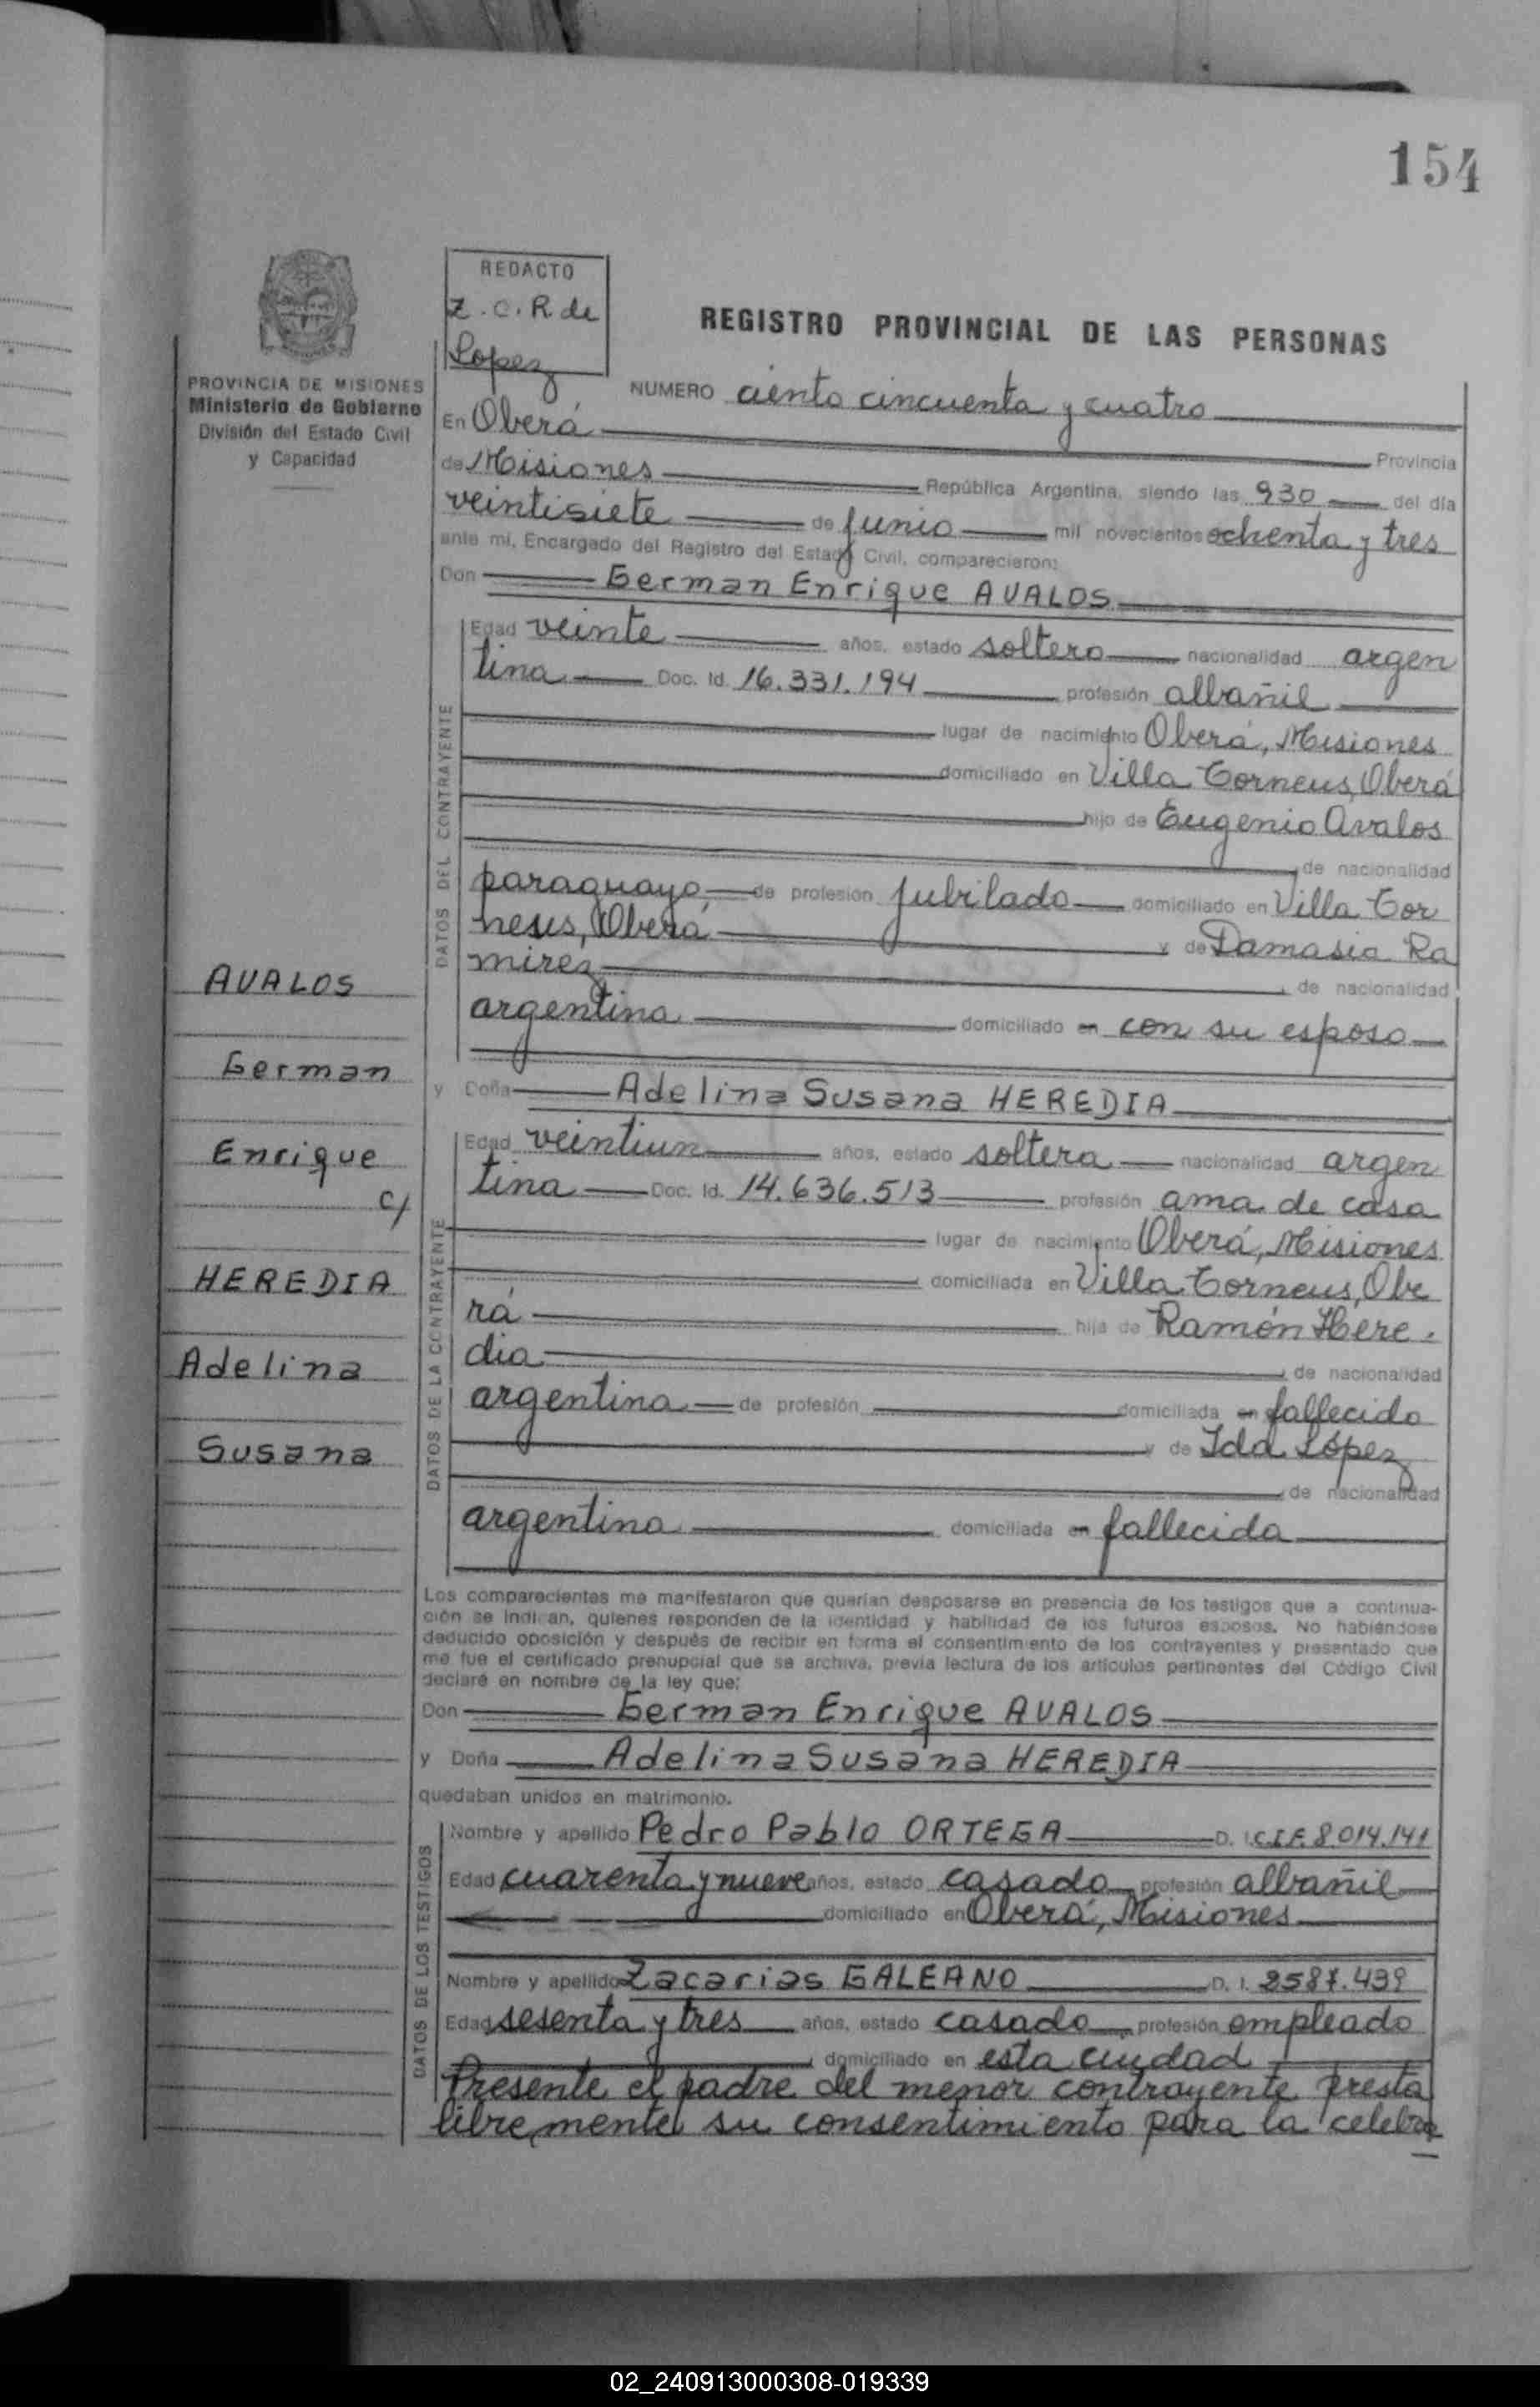 154
REDACTO
Z. C. R. de
Lopez
REGISTRO PROVINCIAL DE LAS PERSONAS
PROVINCIA DE MISIONES
Ministerio de Gobierno
División del Estado Civil
y Capacidad
NUMERO ciento cincuenta y cuatro
En Oberá Provincia
de Misiones República Argentina, siendo las 930 del día
veintisiete de junio mil novecientos ochenta y tres
ante mi, Encargado del Registro del Estado Civil, comparecieron:
Don German Enrique AVALOS
DATOS DEL CONTRAYENTE
Edad veinte años, estado soltero nacionalidad argen
tina Doc. Id. 16.331.194 profesión albañil
lugar de nacimiento Oberá, Misiones
domiciliado en Villa Torneus, Oberá
hijo de Eugenio Avalos
de nacionalidad
paraguayo de profesion jubilado domiciliado en Villa Tor
neus, Oberá y de Damasia Ra
mirez, de nacionalidad
argentina domiciliado en con su esposo
y Doña Adelina Susana HEREDIA
DATOS DE LA CONTRAYENTE
Edad veintiun años, estado soltera nacionalidad argen
tina Doc. Id. 14.636.513 profesión ama de casa
lugar de nacimiento Oberá, Misiones
domiciliada en Villa Torneus, Obe
rá hija de Ramón Here
dia, de nacionalidad
argentina de profesión domiciliada en fallecido
y de Ida López
de nacionalidad
argentina domiciliada en fallecida
AVALOS
German
Enrique
c/
HEREDIA
Adelina
Susana
Los comparecientes me manifestaron que querían desposarse en presencia de los testigos que a continua-
ción se indican, quienes responden de la identidad y habilidad de los futuros esposos. No habiéndose
deducido oposición y después de recibir en forma el consentimiento de los contrayentes y presentado que
me fue el certificado prenupcial que se archiva, previa lectura de los artículos pertinentes del Código Civil
declaré en nombre de la ley que:
Don German Enrique AVALOS
y Doña Adelina Susana HEREDIA
quedaban unidos en matrimonio.
DATOS DE LOS TESTIGOS
Nombre y apellido Pedro Pablo ORTEGA D. I. C.I.F. 8.014.141
Edad cuarenta y nueve años, estado casado profesión albañil
domiciliado en Oberá, Misiones
Nombre y apellido Zacarias GALEANO D. I. 2587.439
Edad sesenta y tres años, estado casado, profesión empleado
domiciliado en esta ciudad
Presente el padre del menor contrayente presta
libremente su consentimiento para la celebra
02_240913000308-019339